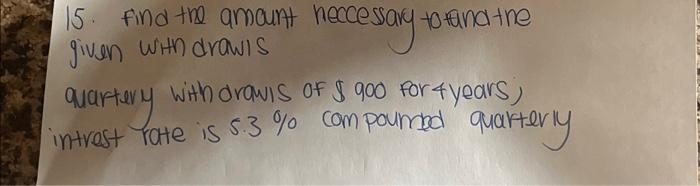 15. Find the amount neccessary to fund the
given withdrawls
quartery withdrawls of $900 for 4 years;
intrest rate is 5.3% compounded quarterly